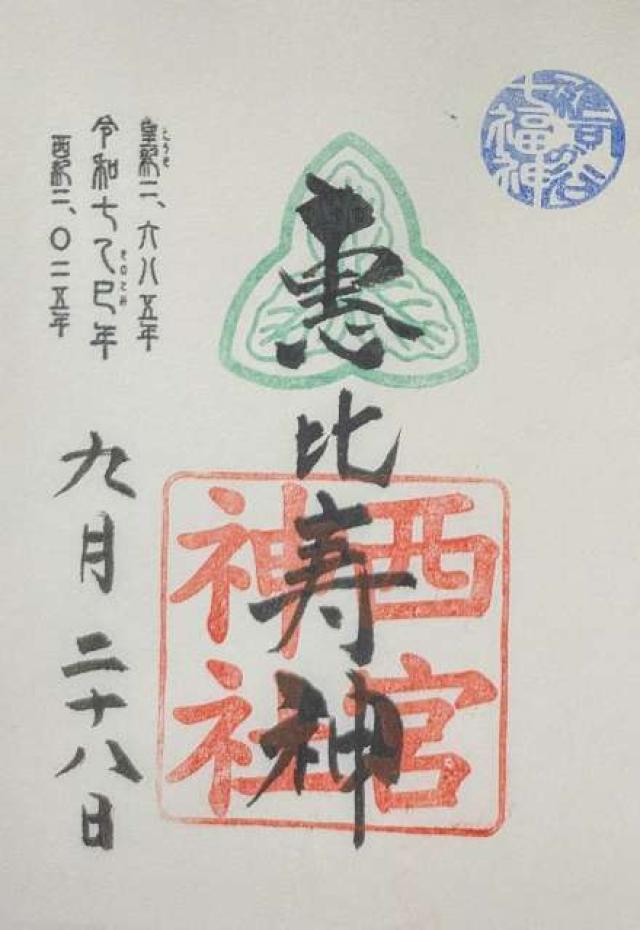 雑司が谷
七福神
恵比寿神
西宮
神社
皇紀二、六八五年
令和七乙巳年
西紀二、〇二五年
九月二十八日